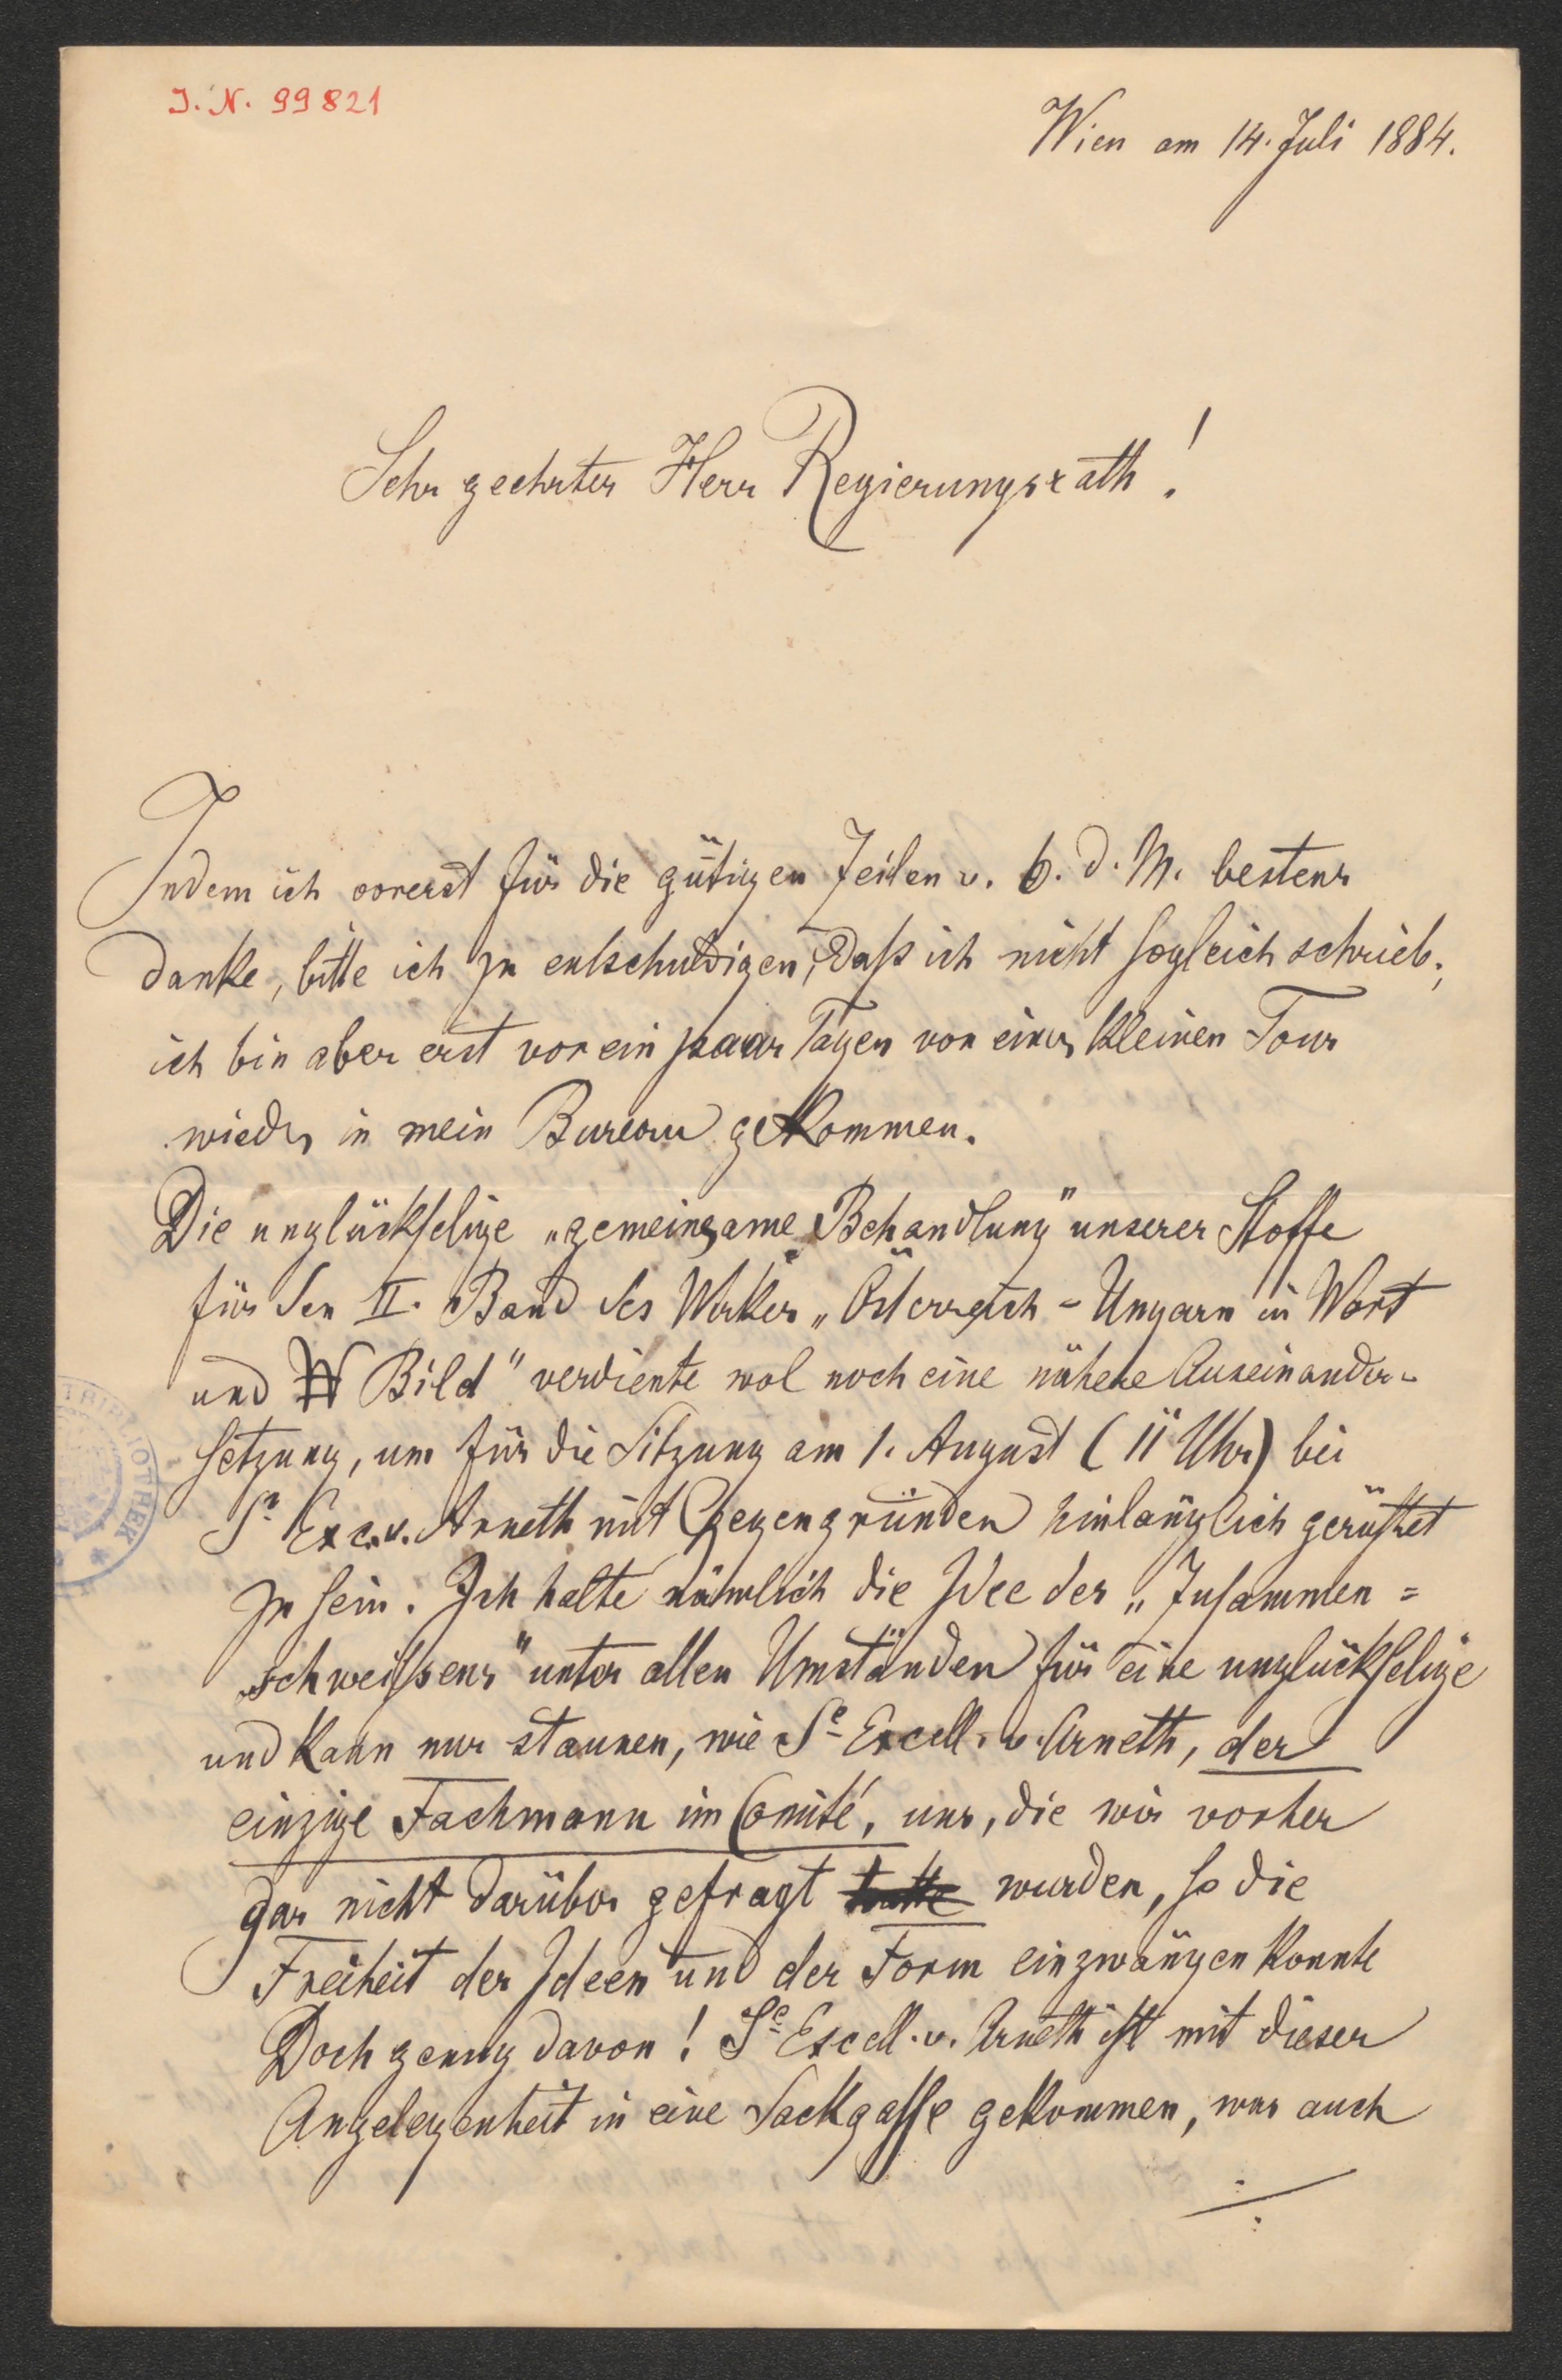 J. N. 99821
Wien am 14. Juli 1884.
Sehr geehrter Herr Regierungsrath!
Indem ich vorerst für die gütigen Zeilen v. 6. d. M. bestens
danke, bitte ich zu entschuldigen, daß ich nicht sogleich schrieb;
ich bin aber erst vor ein paar Tagen von einer kleinen Tour
wieder in mein Bureau gekommen.
Die unglückselige „gemeinsame Behandlung" unserer Stoffe
für den II. Band des Werkes „Österreich-Ungarn in Wort
und Bild" verdiente wol noch eine nähere Auseinander-
setzung, um für die Sitzung am 1. August (11 Uhr) bei
Sr Exc. v. Arneth mit Gegengründen hinlänglich gerüstet
zu sein. Ich halte nämlich die Idee des „Zusammen=
schweißens" unter allen Umständen für eine unglückselige
und kann nur staunen, wie Se Excell. v. Arneth, der
einzige Fachmann im Comité, uns, die wir vorher
gar nicht darüber gefragt wurden, so die
Freiheit der Ideen und der Form einzwängen konnte
Doch genug davon! Se Excell. v. Arneth ist mit dieser
Angelegenheit in eine Sackgasse gekommen, was auch
./.
BIBLIOTHEK